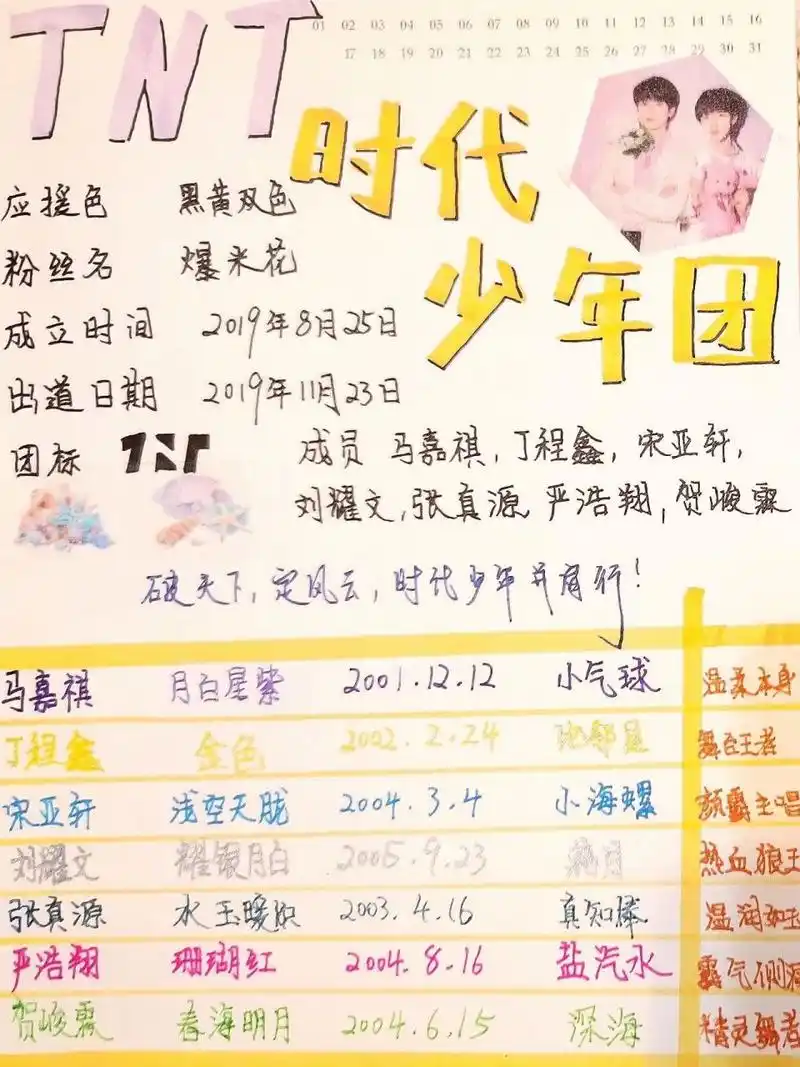 TNT
01 02 03 04 05 06 07 08 09 10 11 12 13 14 15 16
17 18 19 20 21 22 23 24 25 26 27 28 29 30 31
时代
少年团
应援色 黑黄双色
粉丝名 爆米花
成立时间 2019年8月25日
出道日期 2019年11月23日
团标 TNT
成员 马嘉祺,丁程鑫,宋亚轩,
刘耀文,张真源,严浩翔,贺峻霖
破天下,定风云,时代少年并肩行!
马嘉祺 月白星紫 2001.12.12 小气球 温柔本身
丁程鑫 金色 2002.2.24 舞台王者
宋亚轩 浅空天胧 2004.3.4 小海螺 颜霸主唱
刘耀文 耀银月白 2005.9.23 热血狼王
张真源 水玉暖炽 2003.4.16 真知棒 温润如玉
严浩翔 珊瑚红 2004.8.16 盐汽水 霸气侧漏
贺峻霖 春海明月 2004.6.15 深海 精灵舞者